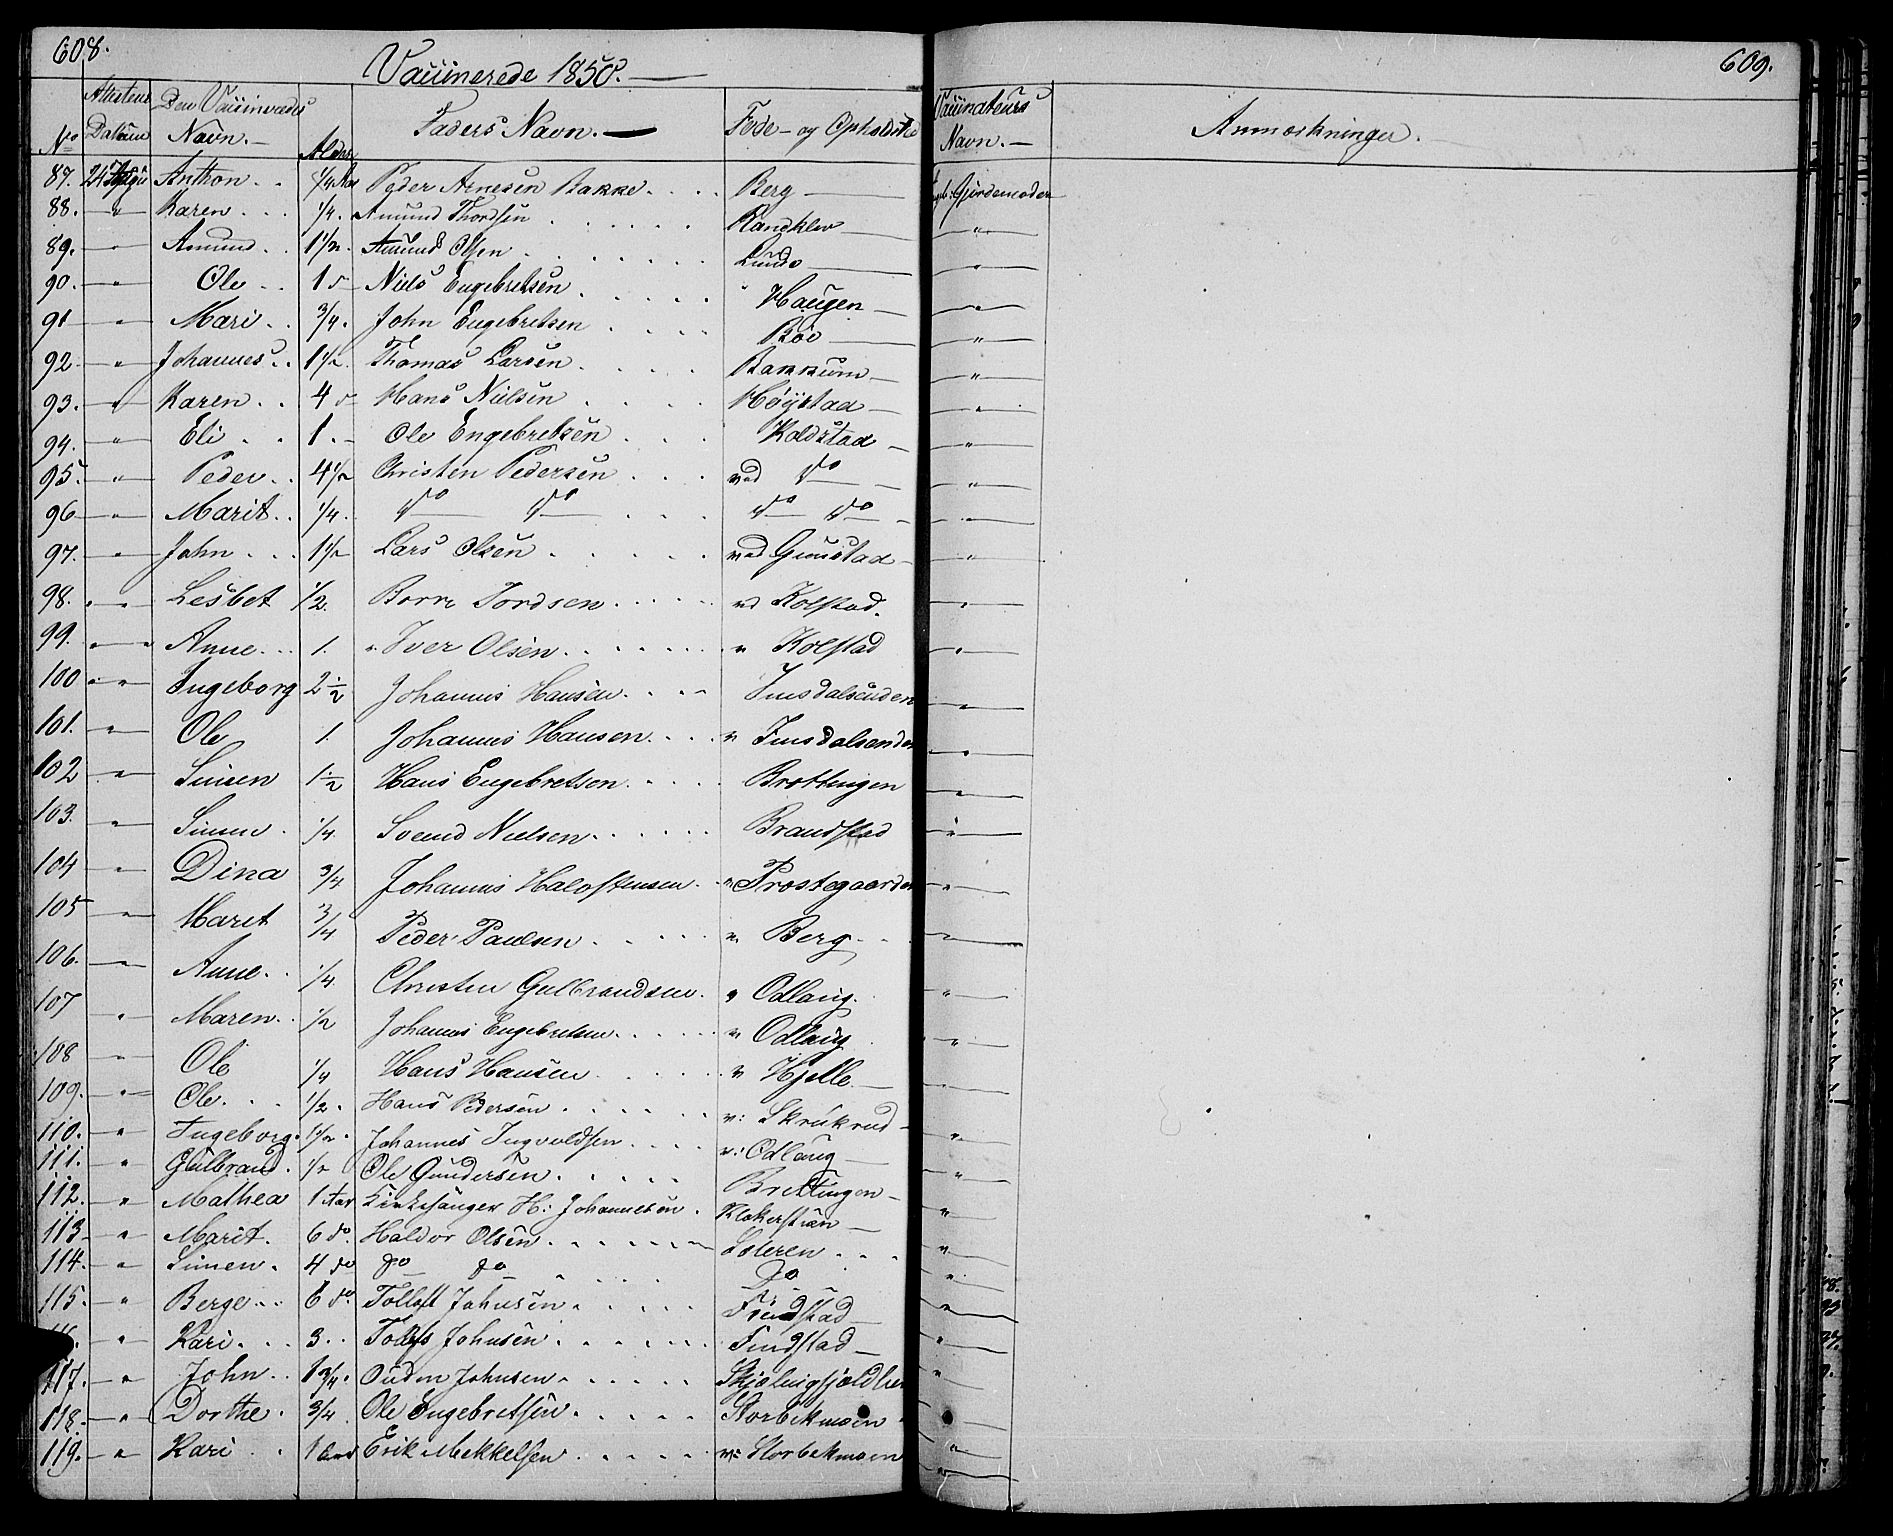 608.
Vaccinerede 1850. —
No
Attestens Datum
Den Vaccineredes Navn. —
Alder
Faders Navn. —
Føde- og Opholdsted
87. 24 Anthon . . 1/4 Aar Peder Arnesen Bakke . . . . Berg —
88. — " Karen . . . 1/4. Amund Thordsen . . . . . Randklev —
89. — " Amund . . 1 1/2. Amund Olsen . . . . . . Lunde —
90. — " Ole . . 1 Niels Engebretsen . . . . . Haugen —
91 — " Mari . . 3/4. John Engebretsen . . . . Bøe —
92. — " Johannes . . 1 1/2. Thomas Larsen . . . . Bakkum —
93. — " Karen . . 4 Hans Nielsen . . . . Høystad —
94. — " Eli . . 1. - Ole Engebretsen . . . Koldstad —
95. — " Peder . . 4 1/2 Christen Pedersen . . . ved do —
96 — " Marit . . 1/4. do do . . . do do —
97. — " John . . . 1 1/2 Lars Olsen . . . . . ved Gunstad —
98. " — Lesbet 1/2. Borre Tordsen . . . . . vd Kolstad.
99. " — " Anne . . . 1. Iver Olsen . . . . . . . " Kolstad
100 " — " Ingeborg 2 1/2 Johannes Hansen . . . . Imsdalsenden
101. — " Ole 1. Johannes Hansen . . . . v Imsdalsenden
102 — " Simen 1 1/2 Hans Engebretsen . . . . . Brettingen
103. — " Simen . 1/4. Svend Nielsen . . . . . . Brandstad
104 — " Dina 3/4 Johannes Halvstensen . . " Prostegaarden
105 — " Maret 3/4 Peder Paulsen . . . . . v. Berg . . .
106. — " Anne . . 1/4. Christen Gulbrandsen . " Odlaug.
107 " Maren . . 1/2 Johannes Engebretsen . . . . . v. Odlaug
108 — " Ole 1/4 Hans Hansen . . . . . . v Hjelle —
109. — " Ole . . . 1/2. Hans Pedersen . . . . . . v: Skrukrud —
110. — " Ingeborg . 1 1/2. Johannes Ingvoldsen . . . . v: Odlaug —
111. — " Gulbrand . 1/2 Ole Gundersen . . . . . Brettingen —
112. — " Mathea 1 Aar Kirkesanger H: Johannesen . Klokerstuen —
113 — " Marit . 6 do. Haldor Olsen . . . . . . —
114. — " Simen . 4 do do do . . . . Do
115. — " Berge . . . 6 do. Tollef Johnsen . . . . . Fundstad —
" Kari . . . 3 . . Tollef Johnsen . . . . . . Fundstad —
117. — " John . . 1 3/4. Ouden Johnsen . . . . . .
118. — " Dorthe . 3/4. Ole Engebretsen . . . . . Storbekmoen
119. — " Kari . . 1 Aar Erik Mekkelsen . . . . . v: Storbekmoen
609.
Vaccinateurs Navn. —
Anmærkninger.
Gjordemoder